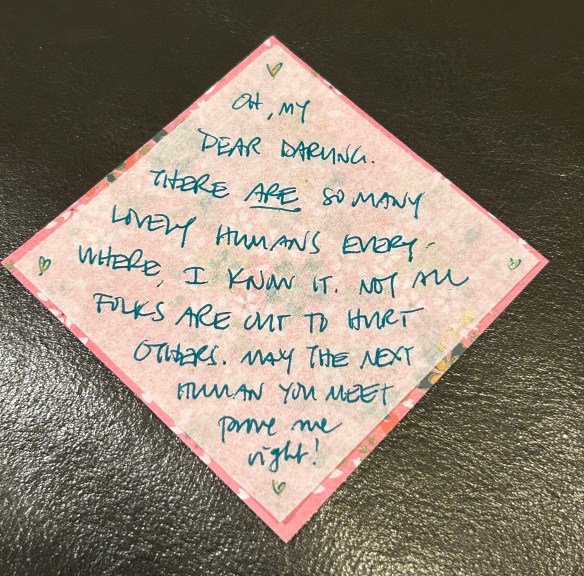 OH, MY
DEAR DARLING.
THERE ARE SO MANY
LOVELY HUMANS EVERY-
WHERE, I KNOW IT. NOT ALL
FOLKS ARE OUT TO HURT
OTHERS. MAY THE NEXT
HUMAN YOU MEET
prove me
right!